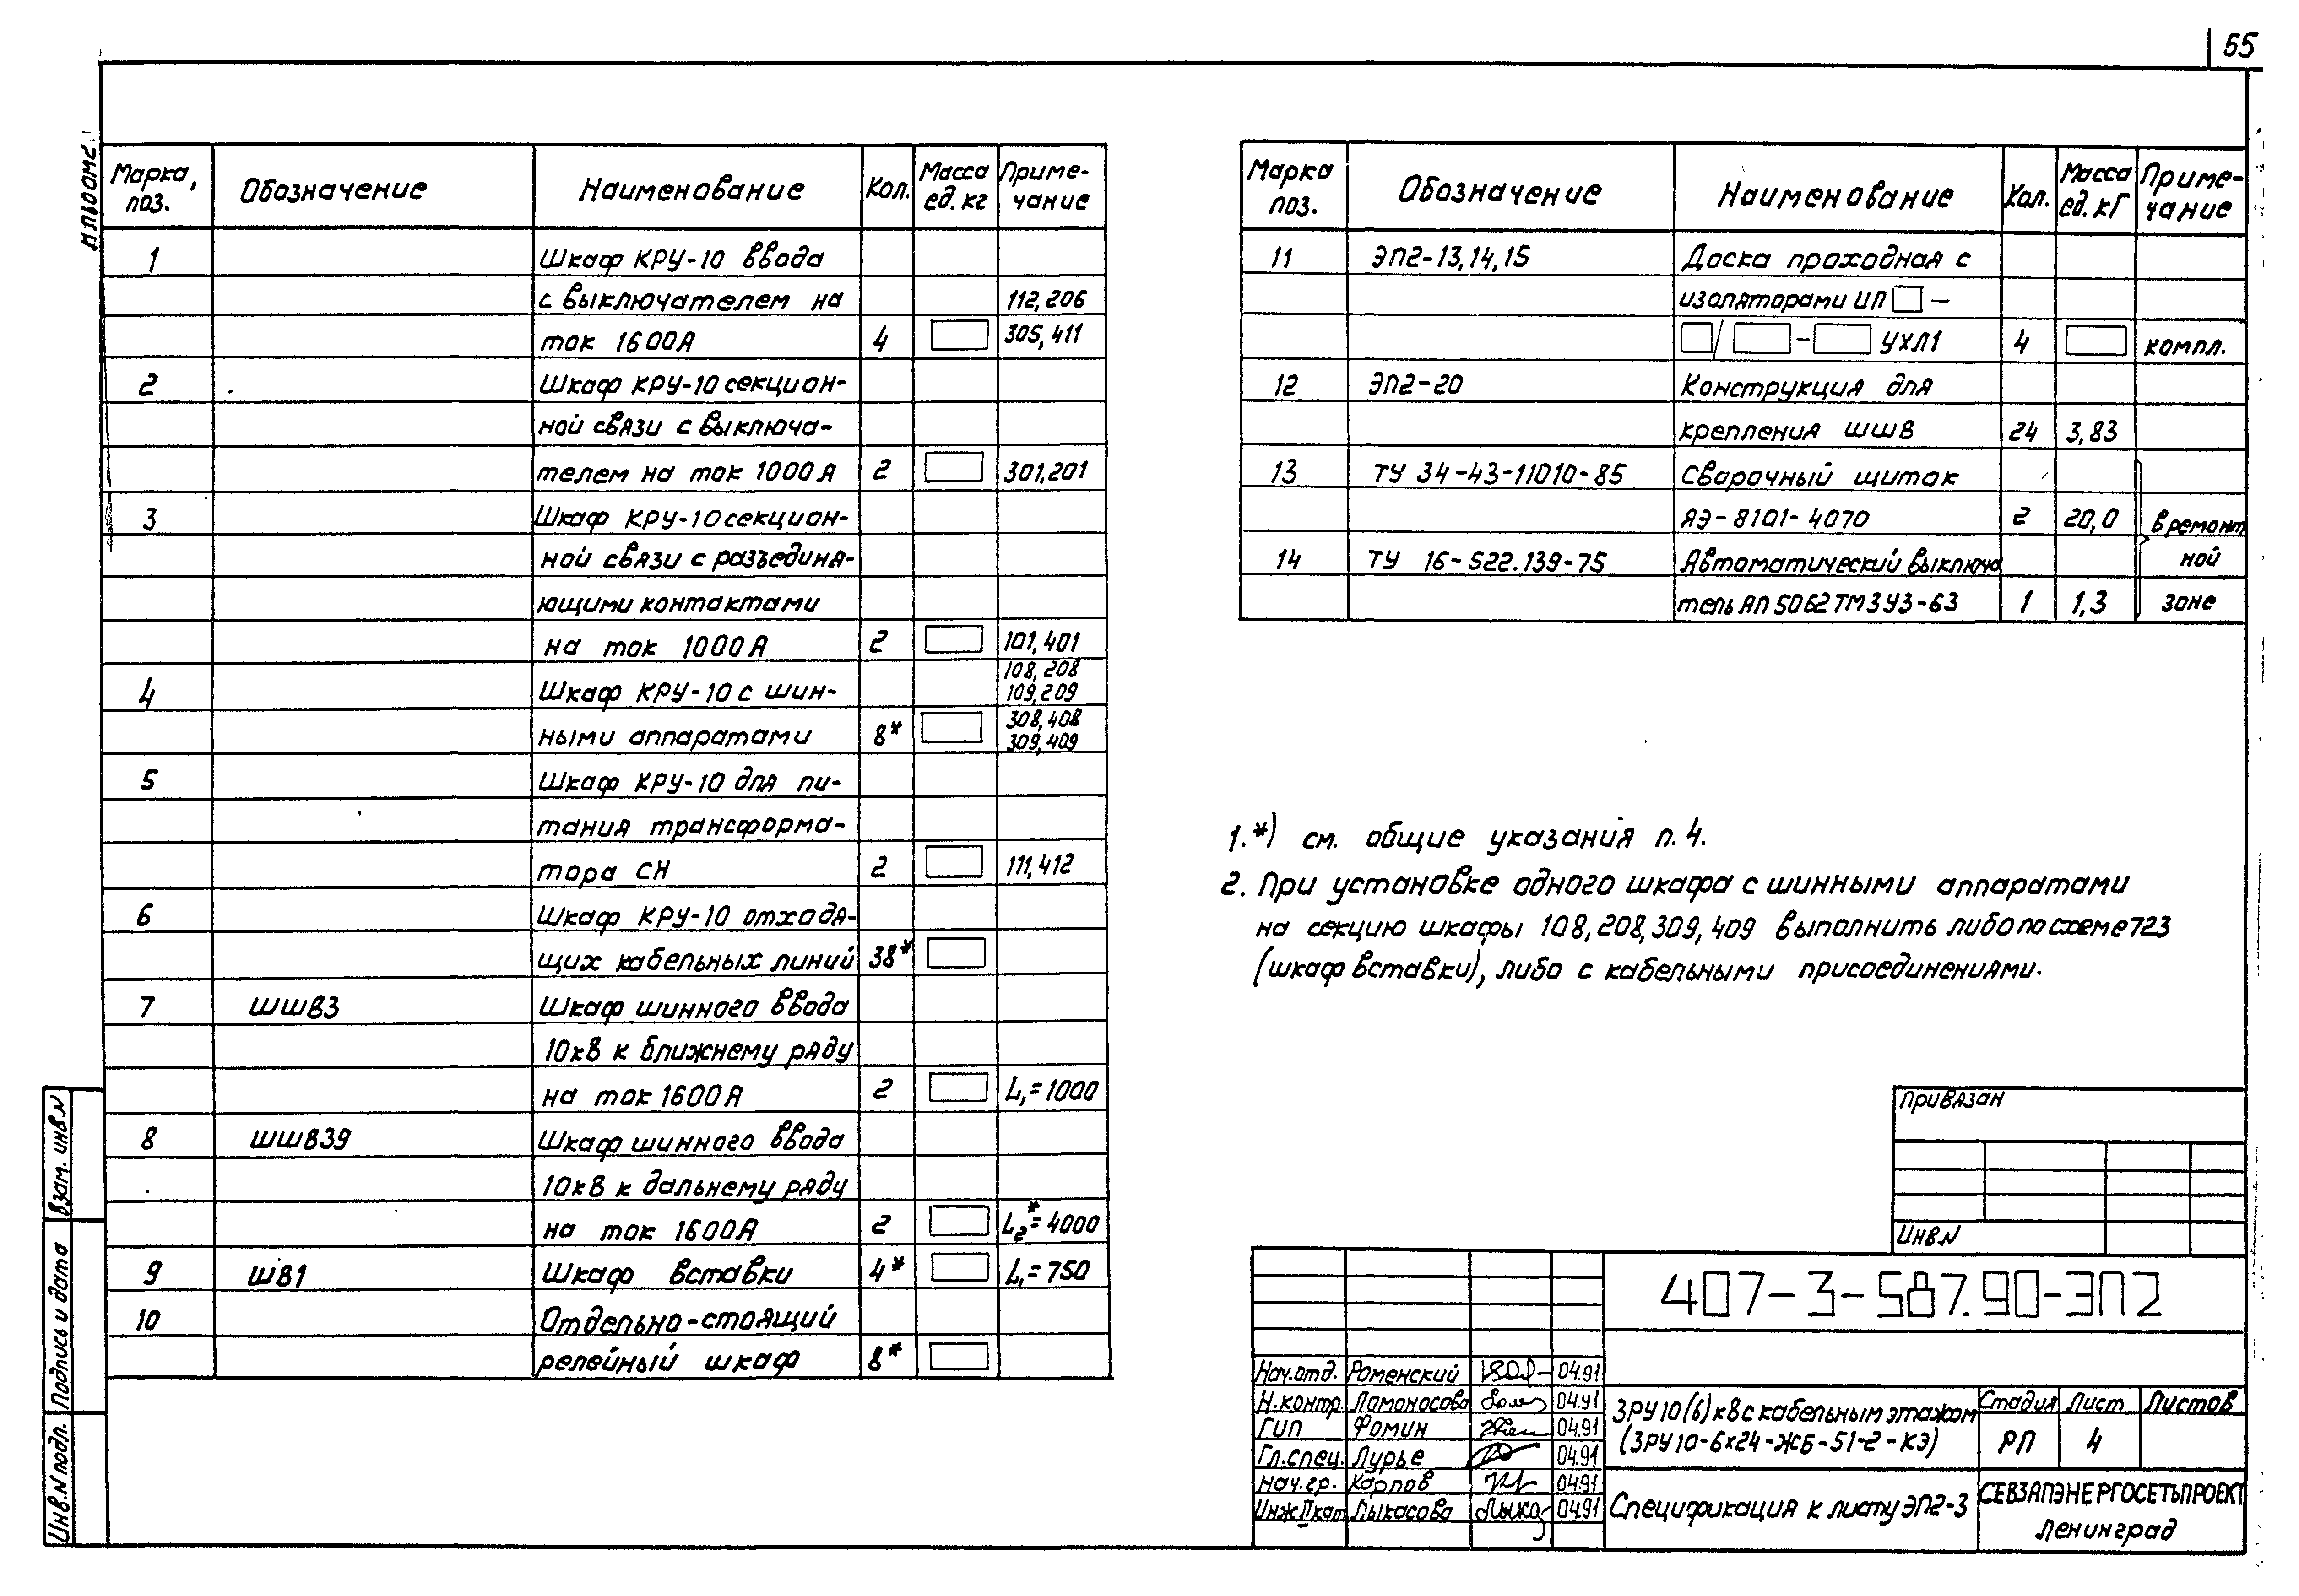 55
Альбом 2
Марка, поз. Обозначение Наименование Кол. Масса ед. кг Приме-чание
1 Шкаф КРУ-10 ввода
с выключателем на 112, 206
ток 1600А 4 305, 411
2 Шкаф КРУ-10 секцион-
ной связи с выключа-
телем на ток 1000А 2 301, 201
3 Шкаф КРУ-10 секцион-
ной связи с разъединя-
ющими контактами
на ток 1000А 2 101, 401
108, 208
4 Шкаф КРУ-10 с шин- 109, 209
308, 408
ными аппаратами 8*
309, 409
5 Шкаф КРУ-10 для пи-
тания трансформа-
тора СН 2 111, 412
6 Шкаф КРУ-10 отходя-
щих кабельных линий 38*
7 ШШВ3 Шкаф шинного ввода
10кВ к ближнему ряду
на ток 1600А 2 L₁=1000
8 ШШВ39 Шкаф шинного ввода
10кВ к дальнему ряду
на ток 1600А 2 L₂*=4000
9 ШВ1 Шкаф вставки 4* L₁=750
10 Отдельно-стоящий
релейный шкаф 8*
Марка поз. Обозначение Наименование Кол. Масса ед. кг Приме-чание
11 ЭП2-13,14,15 Доска проходная с
изоляторами ИП □ –
□/□–□ УХЛ1 4 компл.
12 ЭП2-20 Конструкция для
крепления ШШВ 24 3,83
13 ТУ 34-43-11010-85 Сварочный щиток
ЯЭ-8101-4070 2 20,0 в ремонт
14 ТУ 16-522.139-75 Автоматический выключа ной
тель АП50Б2ТМ3У3-63 1 1,3 зоне
1.*) см. общие указания п.4.
2. При установке одного шкафа с шинными аппаратами
на секцию шкафы 108, 208, 309, 409 выполнить либо по схеме 723
(шкаф вставки), либо с кабельными присоединениями.
Привязан
Инв.N
407-3-587.90-ЭП2
Нач.отд. Роменский 04.91
Н.контр. Ломоносова 04.91
ГИП Фомин 04.91
Гл.спец. Лурье 04.91
Нач.гр. Карпов 04.91
Инж.IIкат Лыкасова 04.91
ЗРУ 10(6) кВ с кабельным этажом
(ЗРУ10-6х24-ЖБ-51-2-КЭ)
Стадия Лист Листов
РП 4
Спецификация к листу ЭП2-3
СЕВЗАПЭНЕРГОСЕТЬПРОЕКТ
Ленинград
Взам. инв.N
Подпись и дата
Инв.N подл.